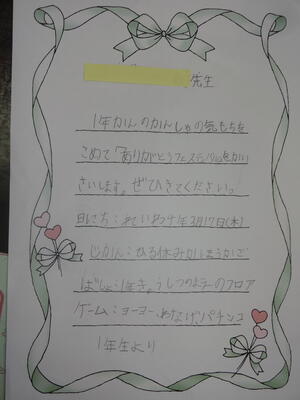 先生
1年かんのかんしゃの気もちを
こめて「ありがとうフェスティバル」をかい
さいします。ぜひきてくださいっ
日にち：れいわ4年3月17日(木)
じかん：ひる休みかいまうかご
ばしょ：1年きょうしつのまえのフロア
ゲーム：ヨーヨー、わなげ、パチンコ
1年生より